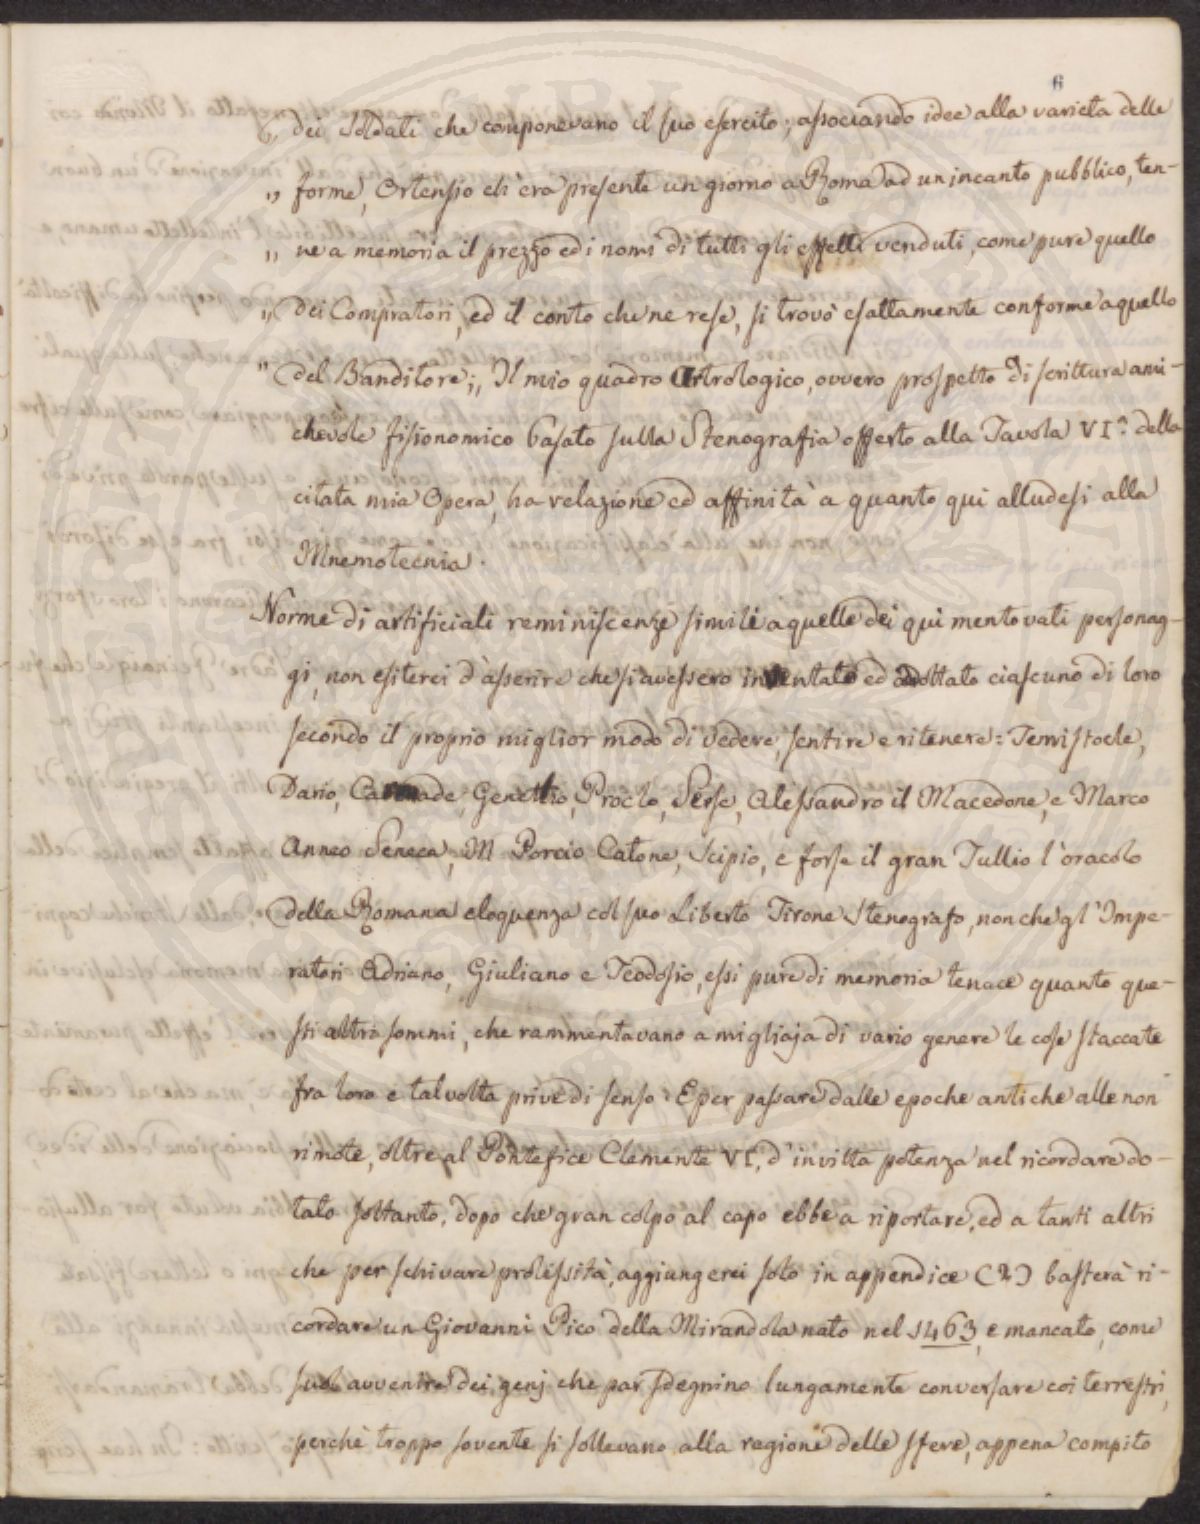 6
„ dei Soldati che componevano il suo esercito; associando idee alla varietà delle
„ forme, Ortensio ch'era presente un giorno a Roma ad un incanto pubblico, ten-
„ ne a memoria il prezzo ed i nomi di tutti gli effetti venduti, come pure quello
„ dei Compratori, ed il conto che ne rese, si trovò esattamente conforme a quello
" del Banditore;„ Il mio quadro Artrologico, ovvero prospetto di scrittura ami-
chevole fisionomico basato sulla Stenografia offerto alla Tavola VI.a della
citata mia Opera, ha relazione ed affinità a quanto quì alludesi alla
Mnemotecnia.
Norme di artificiali reminiscenze simili a quelle dei qui mentovati personag-
gi, non esiterei d'asserire che si avessero inventato ed adottato ciascuno di loro
secondo il proprio miglior modo di vedere, sentire e ritenere: Temistocle,
Dario, Carneade, Genethio, Proclo, Serse, Alessandro il Macedone, e Marco
Anneo Seneca, M Porcio Catone, Scipio, e forse il gran Tullio l'oracolo
della Romana eloquenza col suo Liberto Tirone Stenografo, non che gl'Impe-
ratori Adriano, Giuliano e Teodosio, essi pure di memoria tenace quanto que-
sti altri sommi, che rammentavano a migliaja di vario genere le cose staccate
fra loro e talvolta prive di senso: E per passare dalle epoche antiche alle non
rimote, oltre al Pontefice Clemente VI, d'invitta potenza nel ricordare do-
tato soltanto, dopo che gran colpo al capo ebbe a riportare, ed a tanti altri
che per schivare prolissità, aggiungerei solo in appendice (2) basterà ri-
cordare un Giovanni Pico della Mirandola nato nel 1463, e mancato, come
suol avvenire dei genj che par sdegnino lungamente conversare coi terrestri,
perchè troppo sovente si sollevano alla ragione delle sfere, appena compito